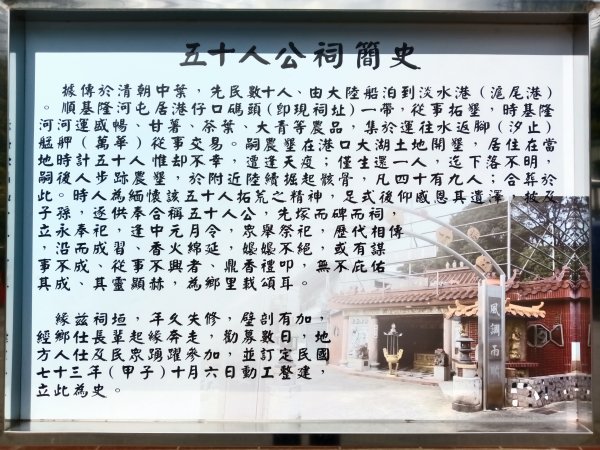 五十人公祠簡史
據傳於清朝中葉，先民數十人、由大陸船泊到淡水港（滬尾港）
。順基隆河屯居港仔口碼頭（即現祠址）一帶，從事拓墾，時基隆
河河運盛暢、甘薯、茶葉、大青等農品，集於運往水返腳（汐止）
艋舺（萬華）從事交易。嗣農墾在港口大湖土地開墾，居住在當
地時計五十人惟却不幸，遭逢天疫；僅生還一人，迄下落不明，
嗣後人步跡農墾，於附近陸續掘起骸骨，凡四十有九人；合葬於
此。時人為緬懷該五十人拓荒之精神，足式後仰感恩其遺澤，被及
子孫，遂供奉合稱五十人公，先塚而碑而祠，
立永奉祀，逢中元月令，眾舉祭祀，歷代相傳
，沿而成習、香火綿延，嬝嬝不絕，或有謀
事不成、從事不興者、鼎香禮叩，無不庇佑
其成、具靈顯赫，為鄉里載頌耳。
緣茲祠垣，年久失修，壁剖有加，
經鄉仕長輩起緣奔走，勸募數日，地
方人仕及民眾踴躍參加，並訂定民國
七十三年（甲子）十月六日動工整建，
立此為史。
風調雨順